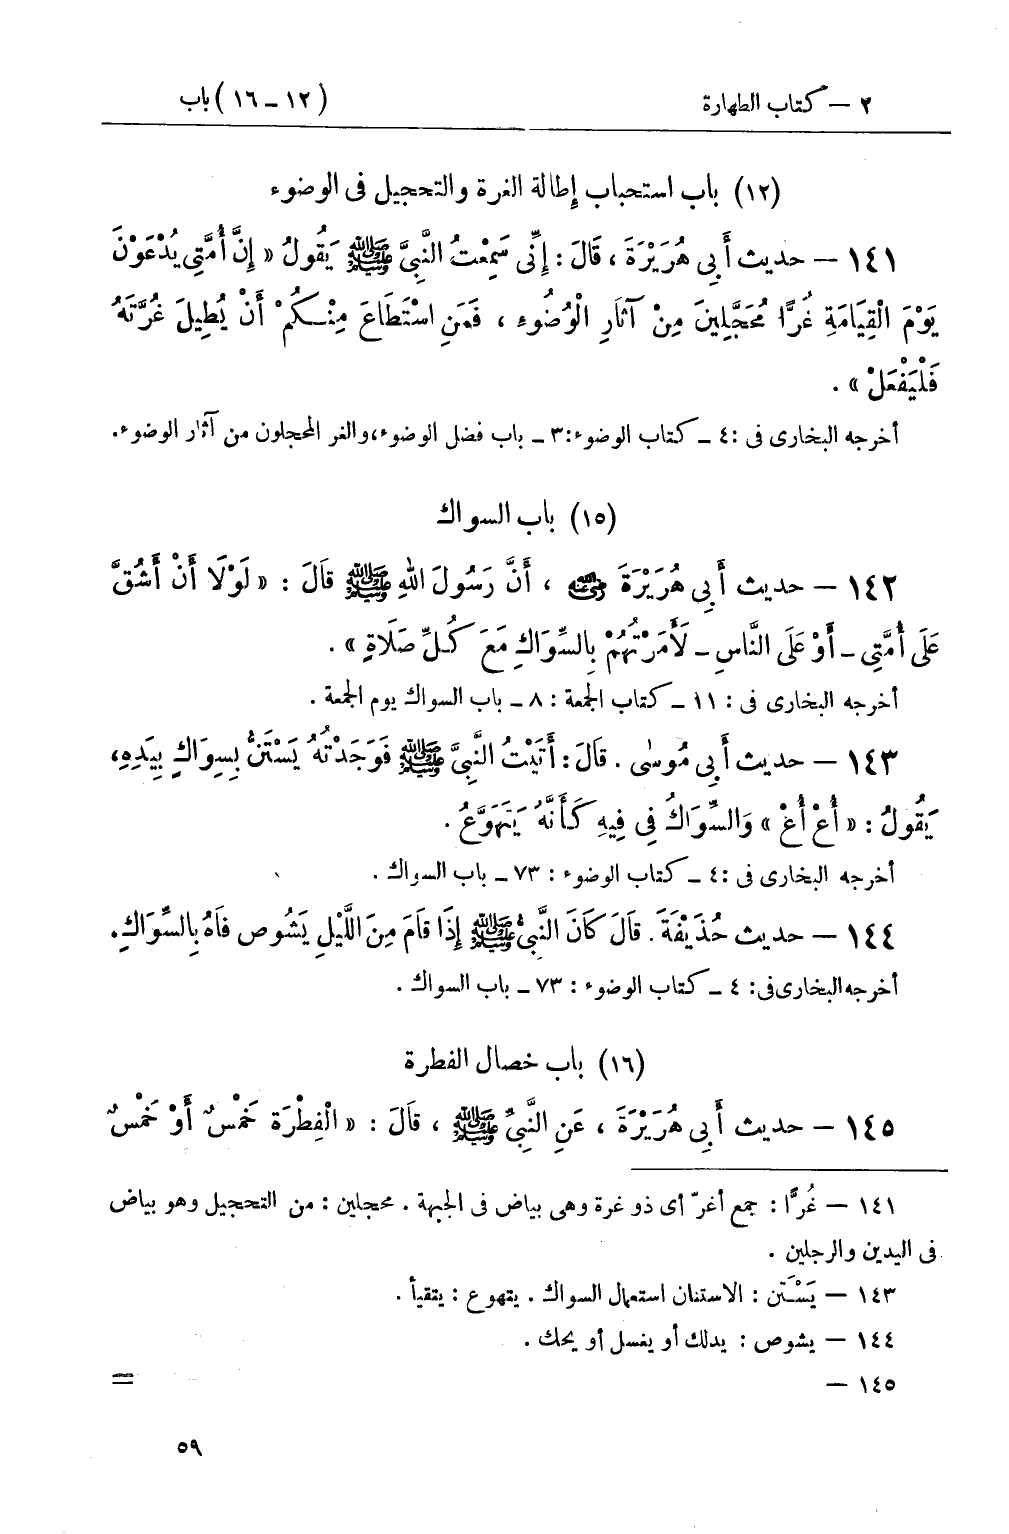 ٢ – كتاب الطهارة (١٢ – ١٦) باب
(١٢) باب استحباب إطالة الغرة والتحجيل فى الوضوء
١٤١ – حديث أَبِي هُرَيْرَةَ ، قَالَ : إِنِّى سَمِعْتُ النَّبِيَّ ﷺ يَقُولُ « إِنَّ أُمَّتِي يُدْعَوْنَ
يَوْمَ الْقِيَامَةِ غُرًّا مُحَجَّلِينَ مِنْ آثَارِ الْوُضُوءِ ، فَمَنِ اسْتَطَاعَ مِنْكُمْ أَنْ يُطِيلَ غُرَّتَهُ
فَلْيَفْعَلْ » .
أخرجه البخارى فى : ٤ – كتاب الوضوء : ٣ – باب فضل الوضوء، والغر المحجلون من آثار الوضوء.
(١٥) باب السواك
١٤٢ – حديث أَبِي هُرَيْرَةَ رضي الله عنه ، أَنَّ رَسُولَ اللهِ ﷺ قَالَ : « لَوْلَا أَنْ أَشُقَّ
عَلَى أُمَّتِي – أَوْ عَلَى النَّاسِ – لَأَمَرْتُهُمْ بِالسِّوَاكِ مَعَ كُلِّ صَلَاةٍ » .
أخرجه البخارى فى : ١١ – كتاب الجمعة : ٨ – باب السواك يوم الجمعة .
١٤٣ – حديث أَبِي مُوسٰى . قَالَ : أَتَيْتُ النَّبِيَّ ﷺ فَوَجَدْتُهُ يَسْتَنُّ بِسِوَاكٍ بِيَدِهِ،
يَقُولُ : « أُعْ أُعْ » وَالسِّوَاكُ فِي فِيهِ كَأَنَّهُ يَتَهَوَّعُ .
أخرجه البخارى فى : ٤ – كتاب الوضوء : ٧٣ – باب السواك .
١٤٤ – حديث حُذَيْفَةَ . قَالَ كَانَ النَّبِيُّ ﷺ إِذَا قَامَ مِنَ اللَّيْلِ يَشُوصُ فَاهُ بِالسِّوَاكِ.
أخرجه البخارى فى: ٤ – كتاب الوضوء : ٧٣ – باب السواك .
(١٦) باب خصال الفطرة
١٤٥ – حديث أَبِي هُرَيْرَةَ ، عَنِ النَّبِيِّ ﷺ ، قَالَ : « الْفِطْرَة خَمْسٌ أَوْ خَمْسٌ
١٤١ – غُرًّا : جمع أغرّ أى ذو غرة وهى بياض فى الجبهة . محجلين : من التحجيل وهو بياض
فى اليدين والرجلين .
١٤٣ – يَسْتَن : الاستنان استعمال السواك . يتهوع : يتقيأ .
١٤٤ – يشوص : يدلك أو يغسل أو يحك .
١٤٥ – =
٥٩